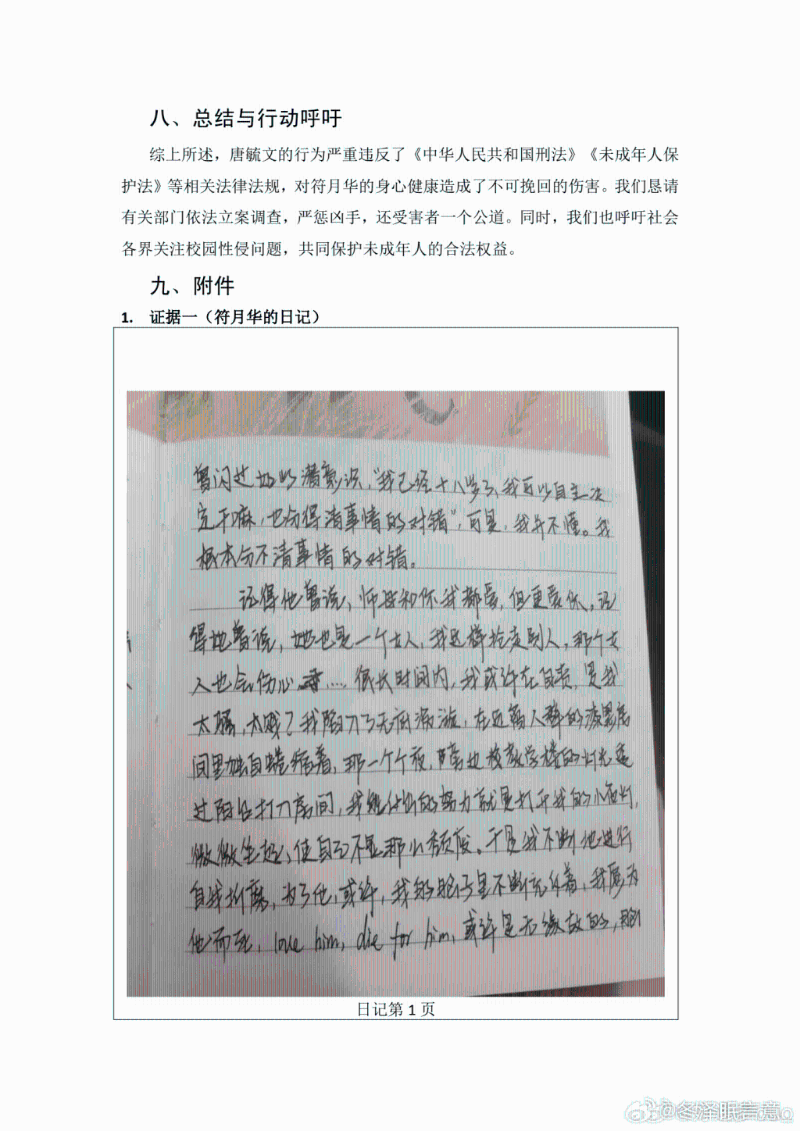 八、总结与行动呼吁
综上所述，唐毓文的行为严重违反了《中华人民共和国刑法》《未成年人保
护法》等相关法律法规，对符月华的身心健康造成了不可挽回的伤害。我们恳请
有关部门依法立案调查，严惩凶手，还受害者一个公道。同时，我们也呼吁社会
各界关注校园性侵问题，共同保护未成年人的合法权益。
九、附件
1. 证据一（符月华的日记）
曾闪过如此潜意识，“我已经十八岁了，我可以自主决
定干嘛，也分得清事情的对错”，可是，我并不懂。我
根本分不清事情的对错。
记得他曾说，师母和你我都爱，但更爱你。记
得她曾说，她也是一个女人，我这样抢走别人，那个女
人也会伤心…… 很长时间内，我或许在自责，是我
太骚，太贱？我陷入了无底漩涡，在远离人群的漆黑房
间里独自蜷缩着，那一个个夜，隔边栋教学楼的灯光透
过阳台打入房间，我能付出的努力就是打开我的小夜灯，
微微坐起，使自己不显那么颓废。于是我不断地进行
自我折磨，为了他，或许，我的脑子里不断充斥着，我愿为
他而死，love him, die for him，或许是无缘故的，
日记第 1 页
@冬泽眠喜意